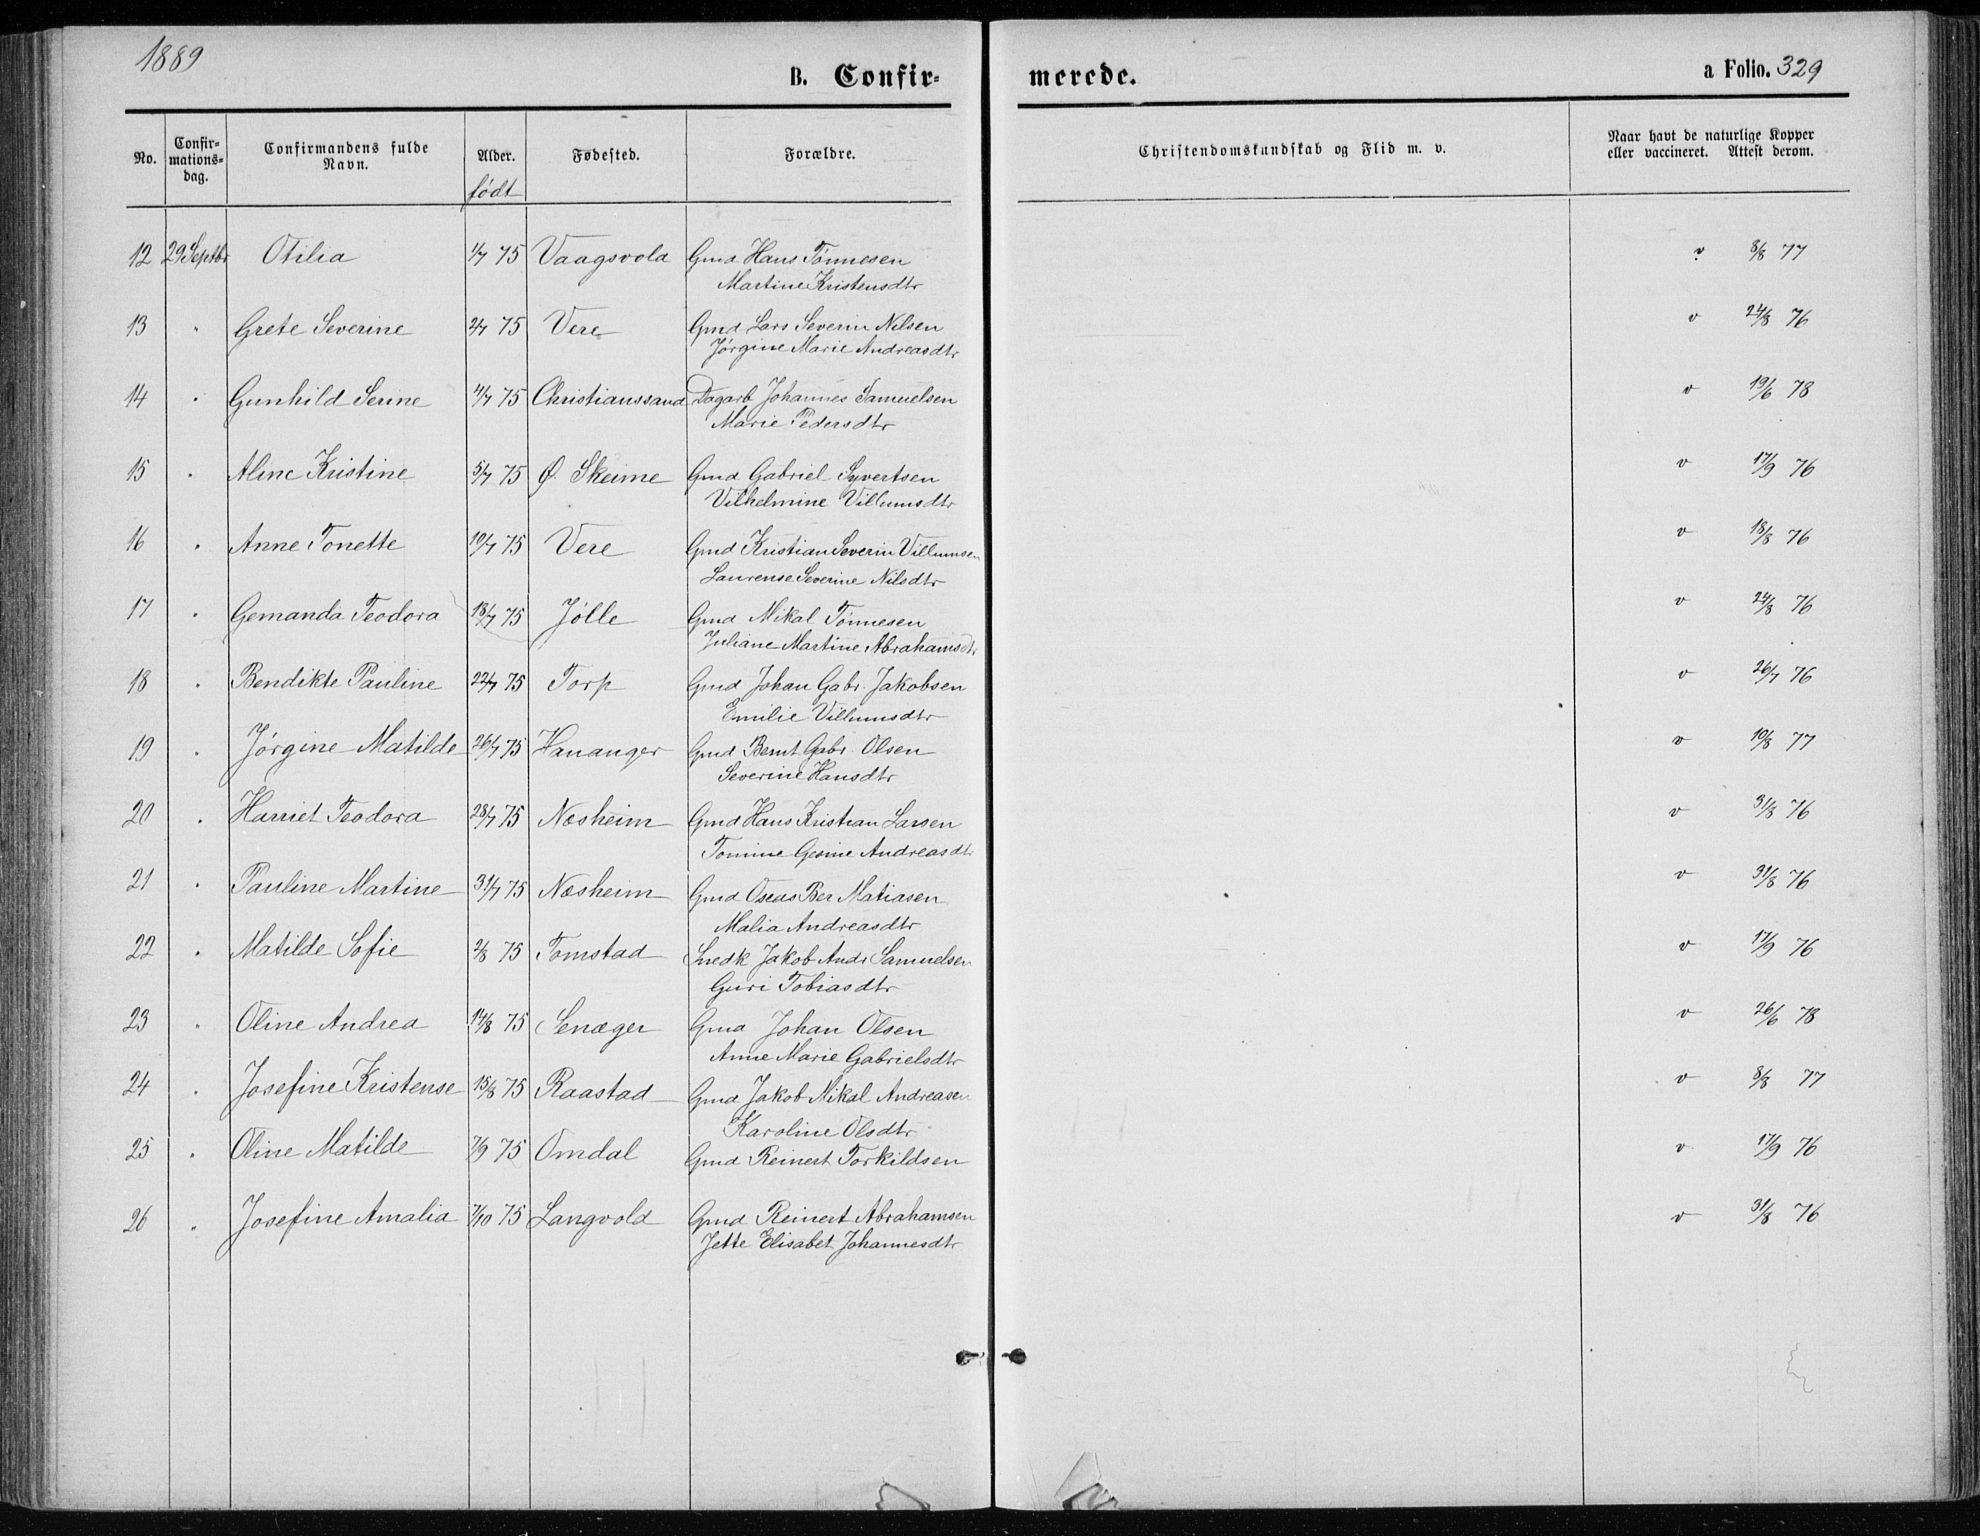 1889
B. Confir-
merede.
a Folio. 329
No. Confir-mations-dag. Confirmandens fulde Navn. Alder. Fødested. Forældre. Christendomskundskab og Flid m. v. Naar havt de naturlige Kopper eller vaccineret. Attest derom.
født
12 29 Septbr Otilia 1/7 75 Vaagsvold Gmd Hans Tønnesen v 8/8 77
Martine Kristensdtr
13 " Grete Severine 2/7 75 Vere Gmd Lars Severin Nilsen v 24/8 76
Jørgine Marie Andreasdtr
14 " Gunhild Serine 4/7 75 Christianssand Dagarb Johannes Samuelsen v 19/6 78
Marie Pedersdtr
15 " Aline Kristine 5/7 75 Ø. Skeime Gmd Gabriel Syvertsen v 17/9 76
Vilhelmine Villumsdtr
16 " Anne Tonette 10/7 75 Vere Gmd Kristian Severin Villumsen v 18/8 76
Laurense Severine Nilsdtr
17 " Gemanda Teodora 18/7 75 Jølle Gmd Mikal Tønnesen v 24/8 76
Juliane Martine Abrahamsdtr
18 " Bendikte Pauline 22/7 75 Torp Gmd Johan Gabr. Jakobsen v 26/7 76
Emilie Villumsdtr
19 " Jørgine Matilde 26/7 75 Hananger Gmd Bernt Gabr. Olsen v 10/8 77
Severine Hansdtr
20 " Harriet Teodora 28/7 75 Næsheim Gmd Hans Kristian Larsen v 31/8 76
Tomine Gesine Andreasdtr
21 " Pauline Martine 31/7 75 Næsheim Gmd Oseas Ber Matiasen v 31/8 76
Malia Andreasdtr
22 " Matilde Sofie 2/8 75 Tomstad Snedk Jakob Andr Samuelsen v 17/9 76
Guri Tobiasdtr
23 " Oline Andrea 14/8 75 Lenæger Gmd Johan Olsen v 26/6 78
Anne Marie Gabrielsdtr
24 " Josefine Kristense 15/8 75 Raastad Gmd Jakob Mikal Andreasen v 8/8 77
Karoline Olsdtr
25 " Oline Matilde 7/9 75 Omdal Gmd Reinert Torkildsen v 17/9 76
26 " Josefine Amalia 7/10 75 Langvold Gmd Reinert Abrahamsen v 31/8 76
Jette Elisabet Johannesdtr